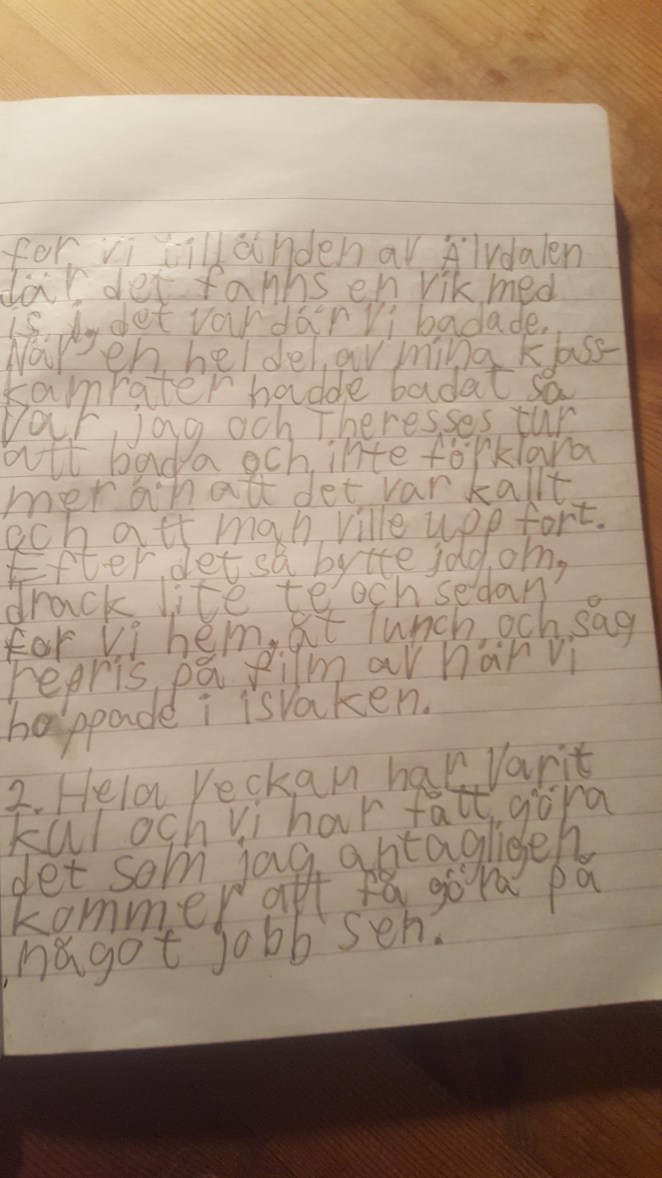 for vi till änden av Älvdalen
där det fanns en vik med
is i, det var där vi badade.
När en hel del av mina klass-
kamrater hadde badat så
var jag och Theresses tur
att bada och inte förklara
mer än att det var kallt
och att man ville upp fort.
Efter det så bytte jag om,
drack lite te och sedan
for vi hem, åt lunch och såg
repris på film av när vi
hoppade i isvaken.
2. Hela veckan har varit
kul och vi har fått göra
det som jag antagligen
kommer att få göra på
något jobb sen.